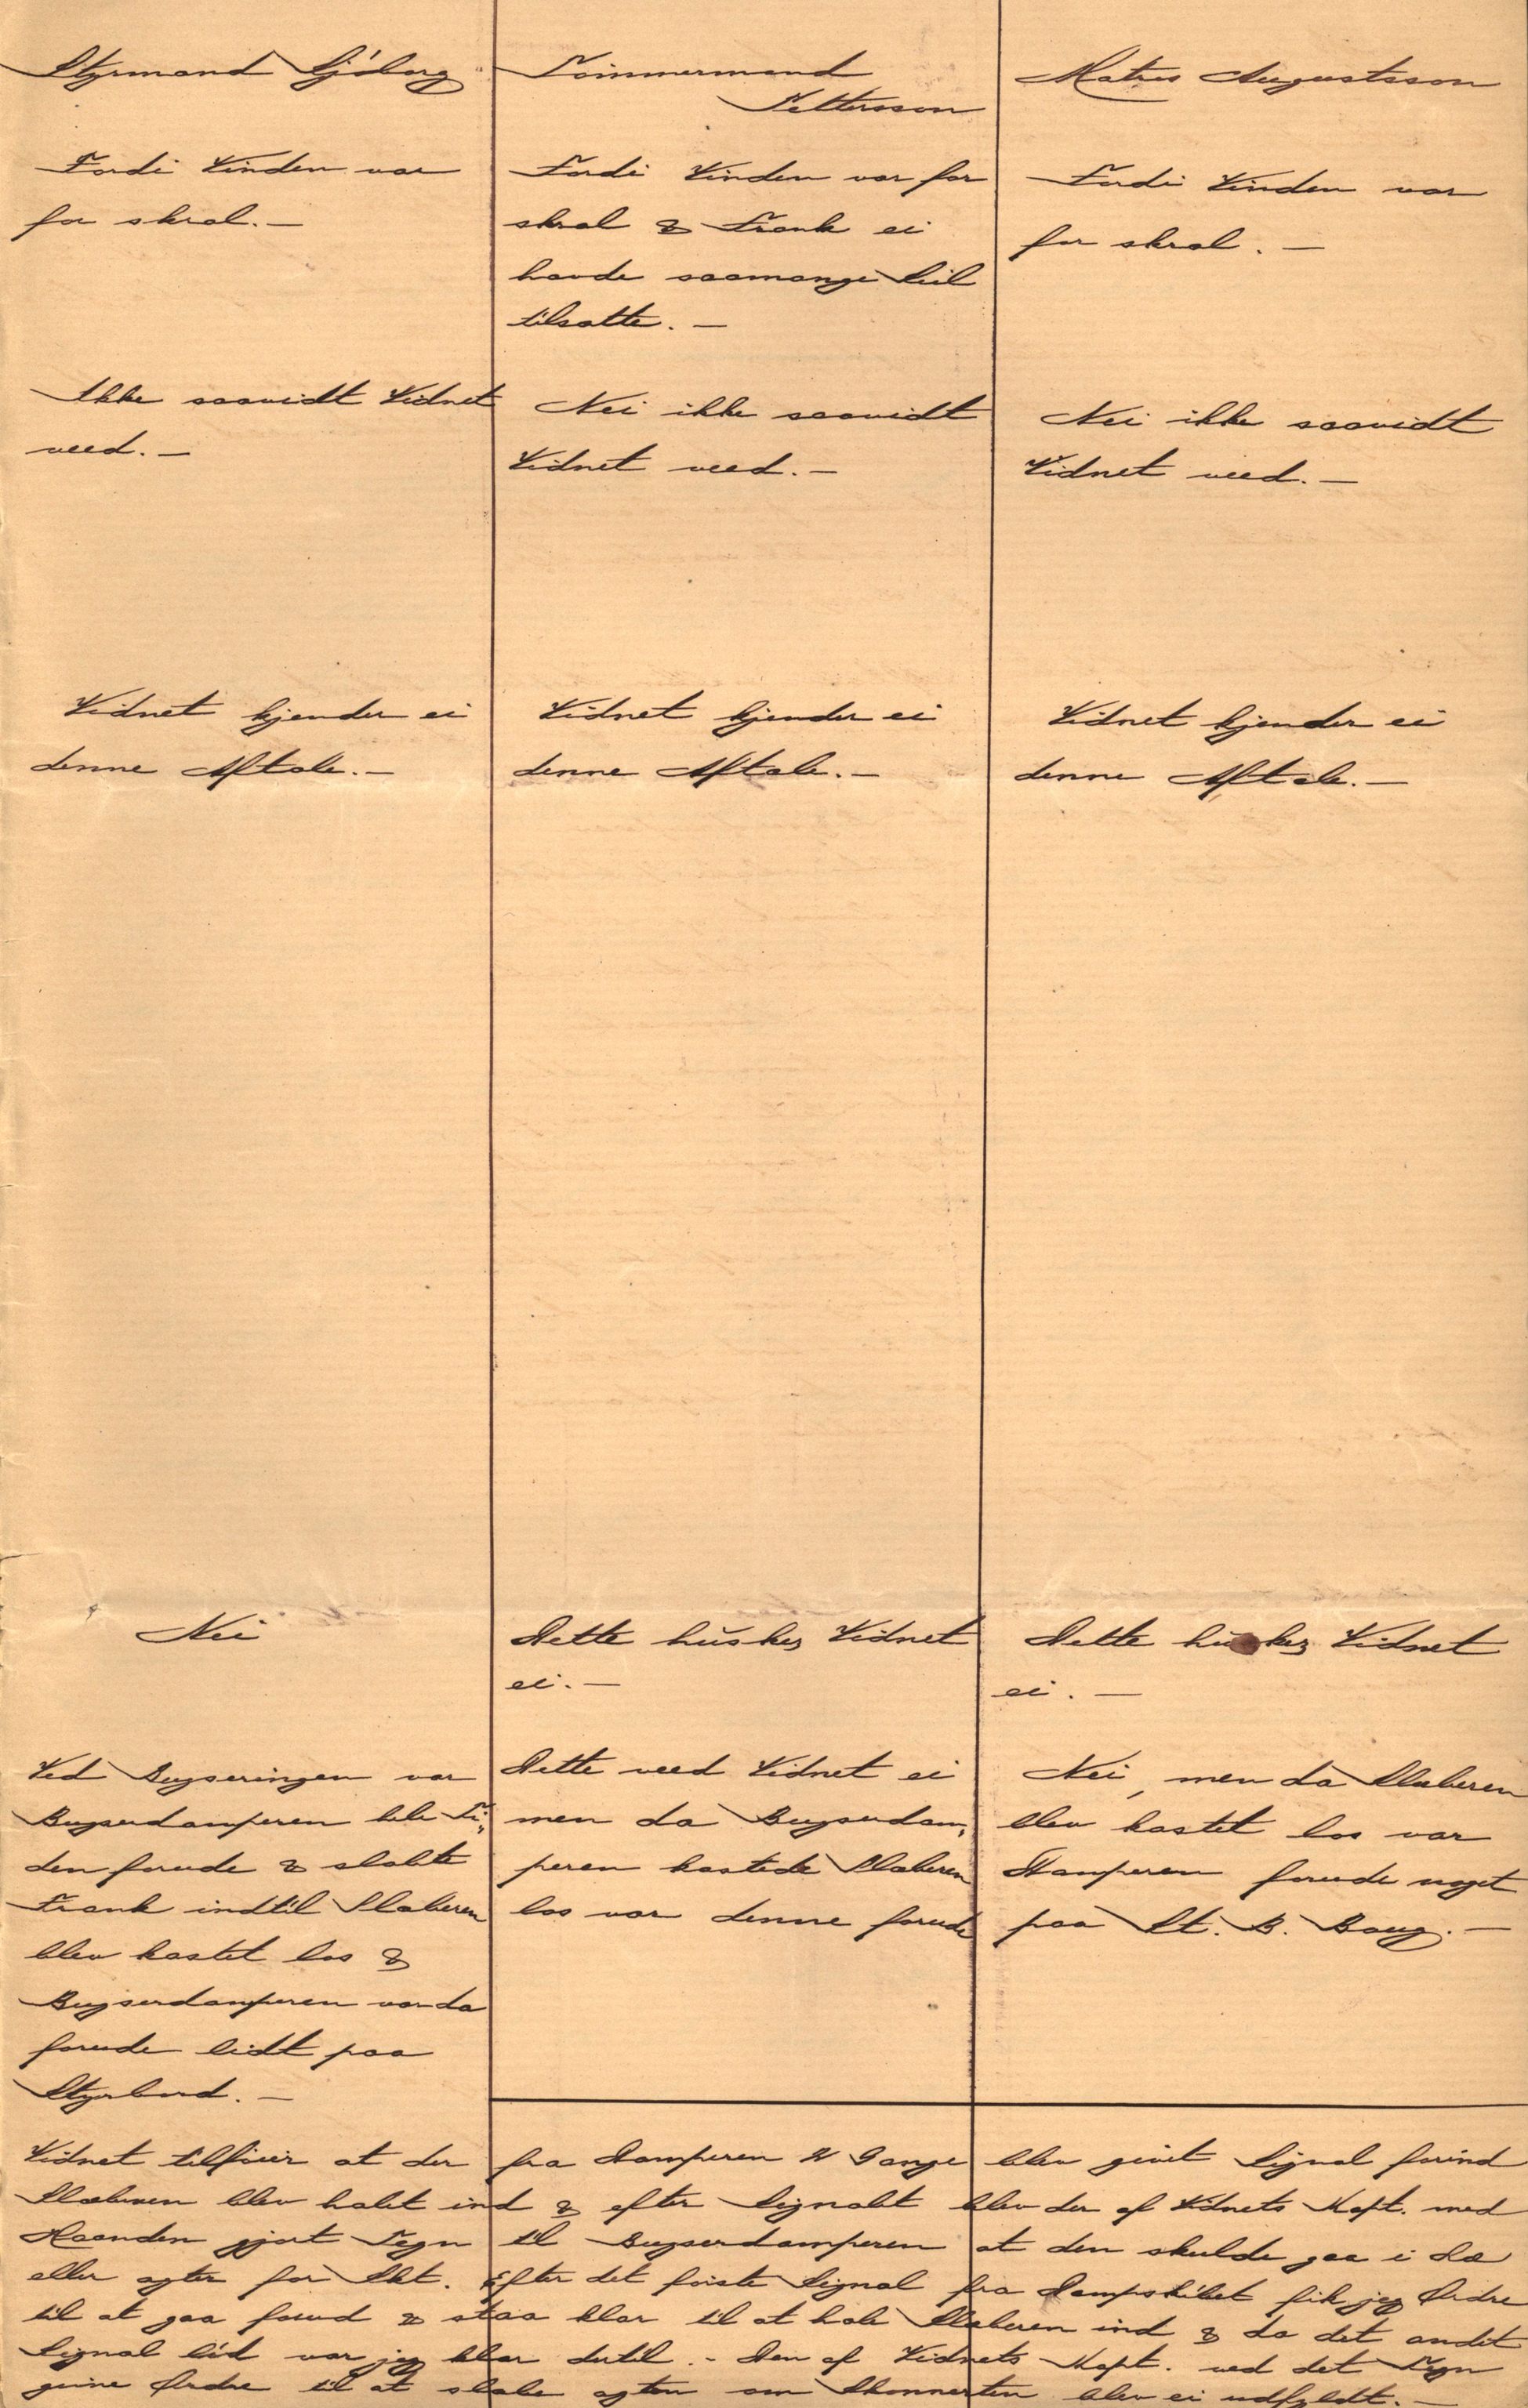 Styrmand Sjöborg
Fordi Vinden var
for skral. —
Ikke saavidt Vidnet
veed. —
Vidnet kjender ei
denne Aftale. —
Nei
Ved Bugseringen var
Bugserdamperen hele Ti,
den forude & slæbte
Frank indtil Slæberen
blev kastet los &
Bugserdamperen var da
forude lidt paa
Styrbord. —
Tömmermand
Pettersson
Fordi Vinden var for
skral & Frank ei
havde saamange Seil
tilsatte. —
Nei ikke saavidt
Vidnet veed. —
Vidnet kjender ei
denne Aftale. —
Dette husker Vidnet
ei. —
Dette veed Vidnet ei
men da Bugserdam,
peren kastede Slæberen
los var denne forude
Matros Augustsson
Fordi Vinden var
for skral. —
Nei ikke saavidt
Vidnet veed. —
Vidnet kjender ei
denne Aftale. —
Dette husker Vidnet
ei. —
Nei, men da Slæberen
blev kastet los var
Damperen forude noget
paa St. B. Boug. —
Vidnet tilföier at der fra Damperen 2 Gange blev givet Signal forind
Slæberen blev halet ind & efter Signalet blev der af Vidnets Kapt. med
Haanden gjort Tegn til Bugserdamperen at den skulde gaa i Læ
eller agter for Skt. Efter det förste Signal fra Dampskibet fik jeg Ordre
til at gaa forud & staa klar til at hale Slæberen ind & da det andet
Signal löd var jeg klar dertil. - Den af Vidnets Kapt. ved det Tegn
givne Ordre til at slæbe agten om Skonnerten blev ei udfyldt. —